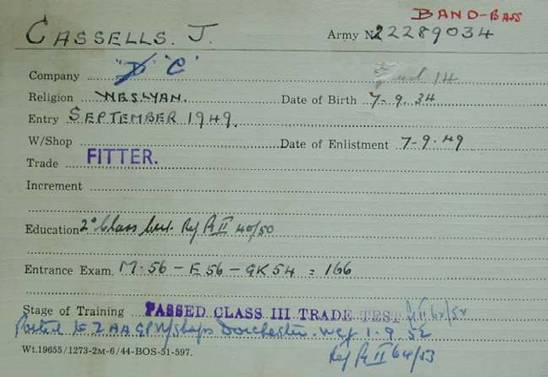 BAND-BASS
CASSELLS. J. Army No 22289034
Company "D" "C"
Religion WESLYAN. Date of Birth 7-9-34
Entry SEPTEMBER 1949.
W/Shop Date of Enlistment 7-9-49
Trade FITTER.
Increment
Education 2° Class Cert. Ref Pt II 40/50
Entrance Exam. M-56 - E 56 - GK 54 = 166
Stage of Training PASSED CLASS III TRADE TEST Pt II
Posted to 2 AA GP W/shops Dorchester. wef 1-9-52
Ref Pt II 64/53
Wt.19655/1273-2m-6/44-BOS-51-597.